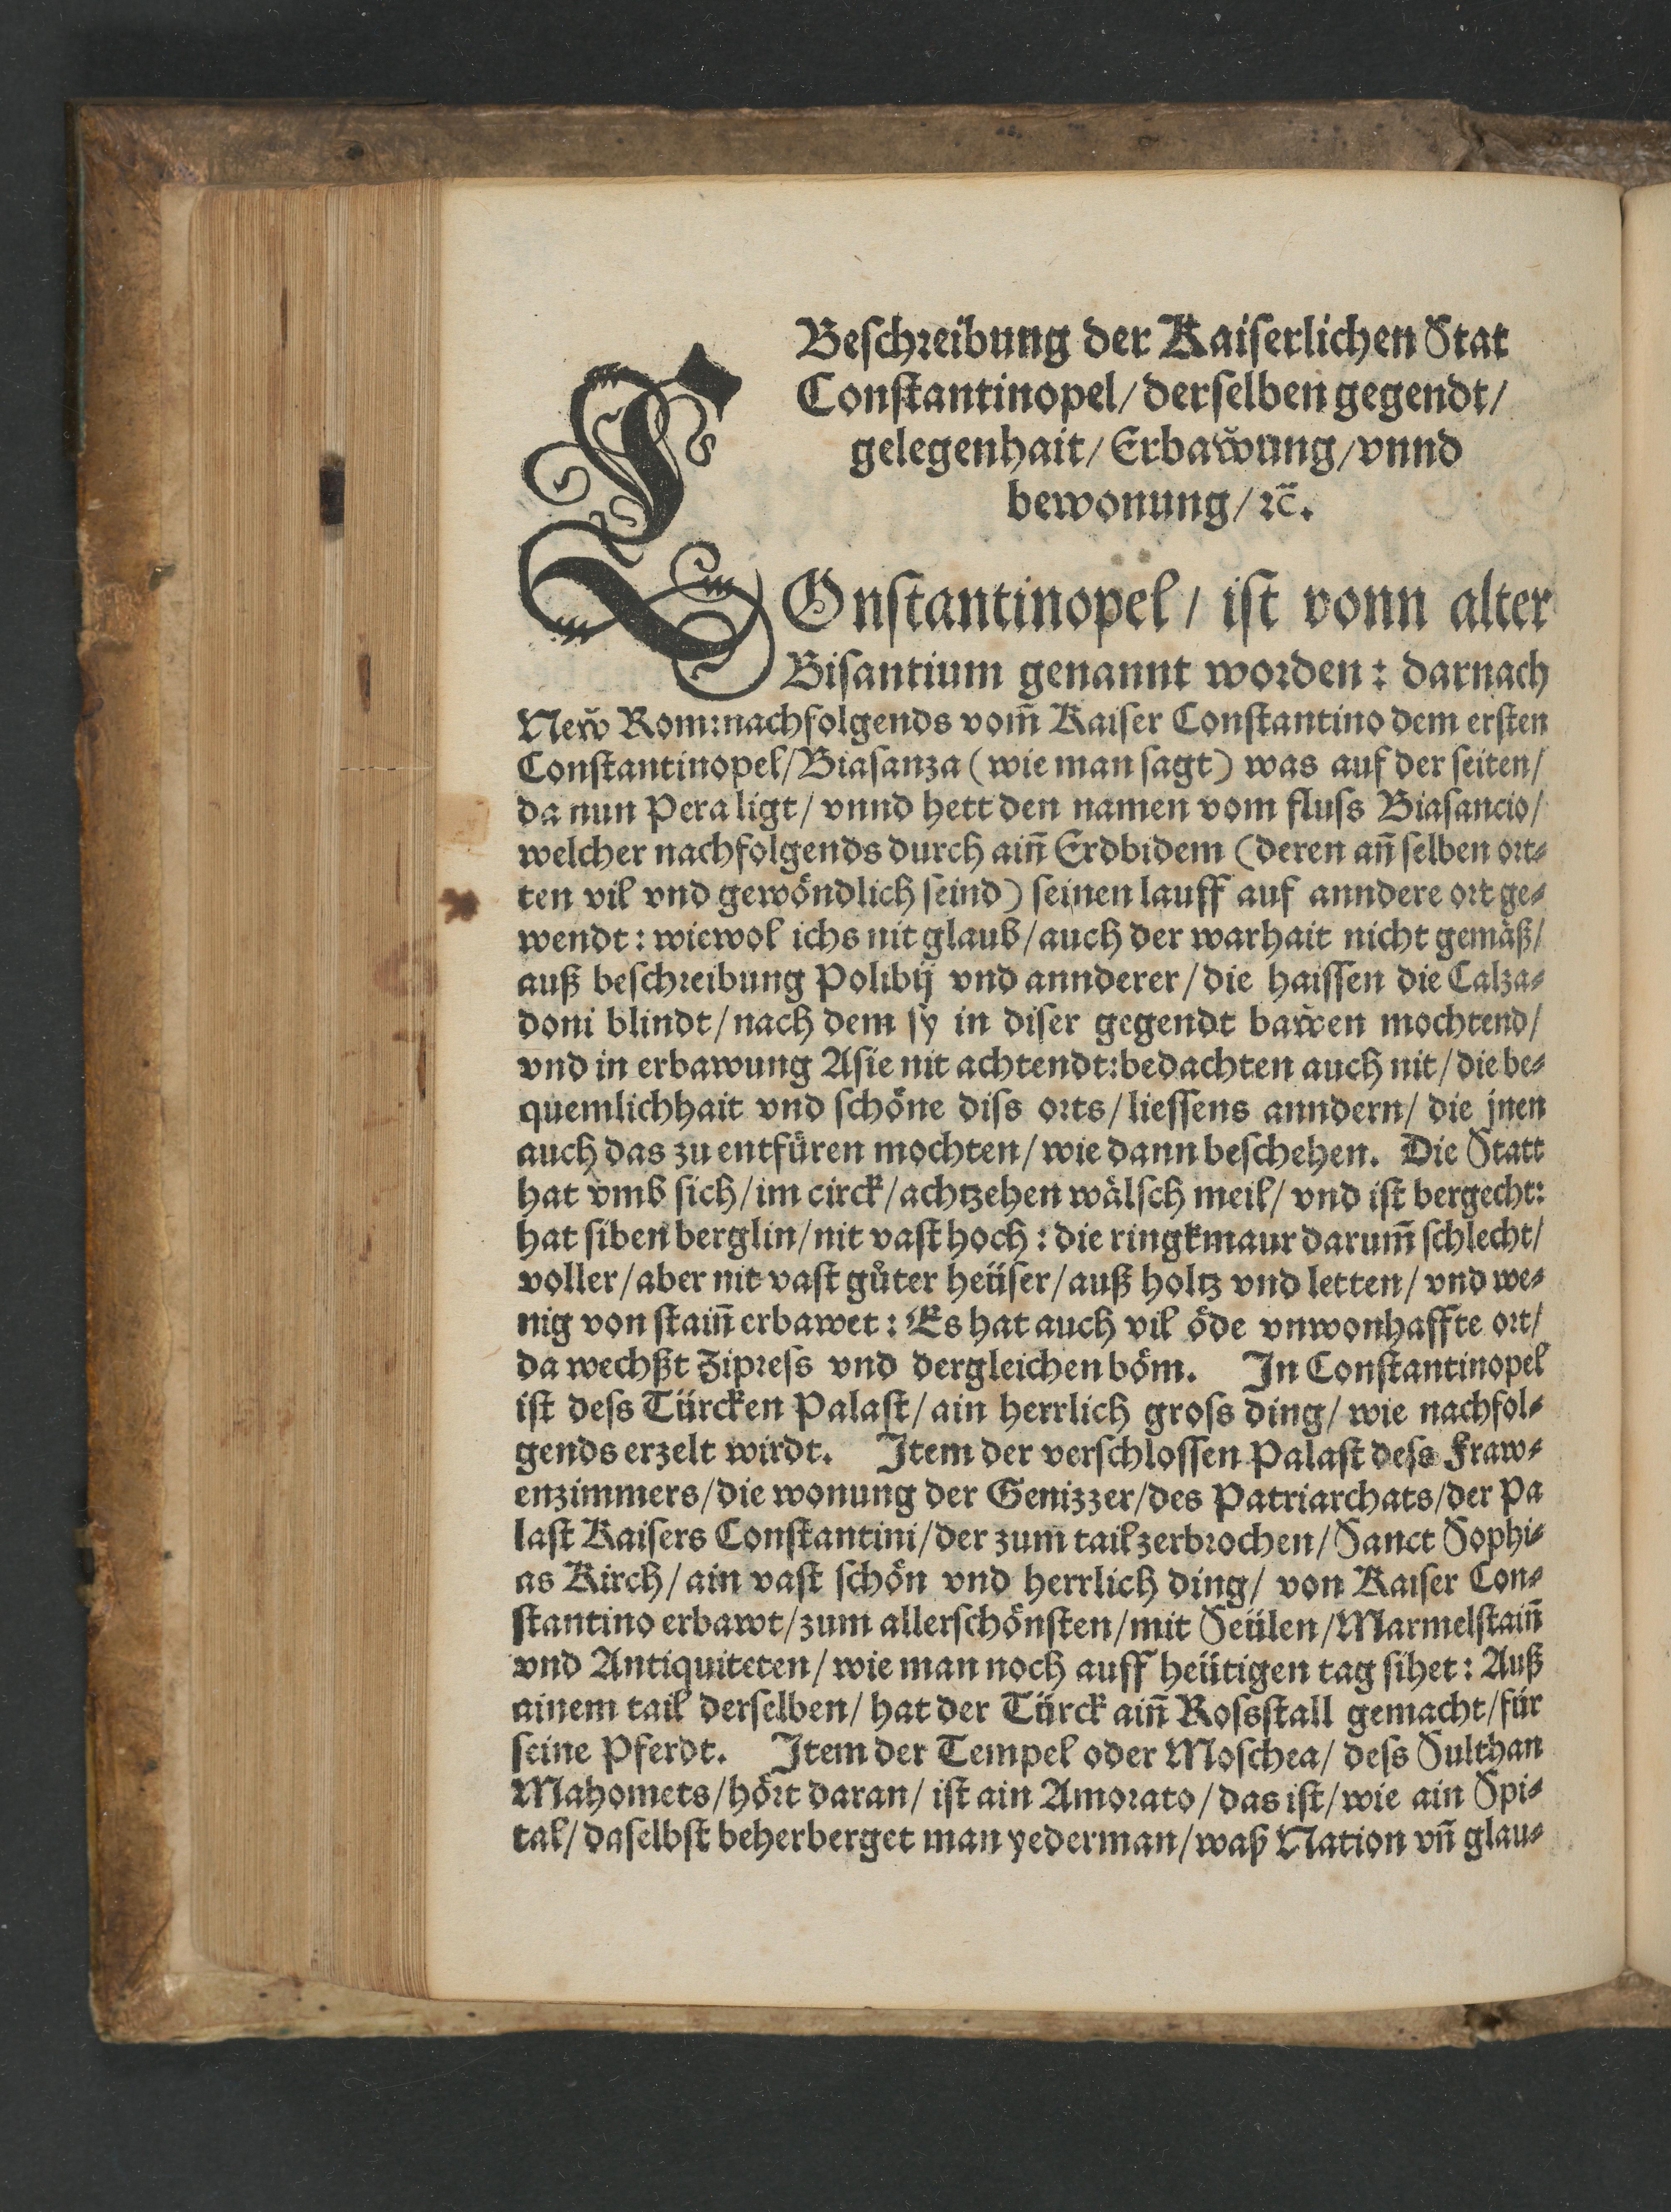 Beschreibung der Kaiserlichen Stat
Constantinopel/ derselben gegendt/
gelegenhait/ Erbaw̆ung/ vnnd
bewonung/ ꝛc̃.
COnstantinopel/ ist vonn alter
Bisantium genannt worden: darnach
New̆ Rom: nachfolgends vom̃ Kaiser Constantino dem ersten
Constantinopel/ Biasanza (wie man sagt) was auf der seiten/
da nun Pera ligt/ vnnd hett den namen vom fluss Biasancio/
welcher nachfolgends durch aiñ Erdbidem (deren añ selben ort⸗
ten vil vnd gewöndlich seind) seinen lauff auf anndere ort ge⸗
wendt: wiewol ichs nit glaub/ auch der warhait nicht gemäß/
auß beschreibung Polibij vnd annderer/ die haissen die Calza⸗
doni blindt/ nach dem sy in diser gegendt baw̆en mochtend/
vnd in erbawung Asie nit achtendt: bedachten auch nit/ die be⸗
quemlichhait vnd schöne diss orts/ liessens anndern/ die jnen
auch das zu entfüren mochten/ wie dann beschehen. Die Statt
hat vmb sich/ im circk/ achtzehen wälsch meil/ vnd ist bergecht:
hat siben berglin/ nit vast hoch: die ringkmaur darum̃ schlecht/
voller/ aber nit vast gůter heüser/ auß holtz vnd letten/ vnd we⸗
nig von staiñ erbawet: Es hat auch vil öde vnwonhaffte ort/
da wechßt Zipress vnd dergleichen böm. In Constantinopel
ist dess Türcken Palast/ ain herrlich gross ding/ wie nachfol⸗
gends erzelt wirdt. Item der verschlossen Palast dess Fraw⸗
enzimmers/ die wonung der Genizzer/ des Patriarchats/ der Pa
last Kaisers Constantini/ der zum tail zerbrochen/ Sanct Sophi⸗
as Kirch/ ain vast schön vnd herrlich ding/ von Kaiser Con⸗
stantino erbawt/ zum allerschönsten/ mit Seülen/ Marmelstaiñ
vnd Antiquiteten/ wie man noch auff heütigen tag sihet: Auß
ainem tail derselben/ hat der Türck aiñ Rossstall gemacht/ für
seine Pferdt. Item der Tempel oder Moschea/ dess Sulthan
Mahomets/ hört daran/ ist ain Amorato/ das ist/ wie ain Spi⸗
tal/ daselbst beherberget man yederman/ waß Nation vñ glau⸗